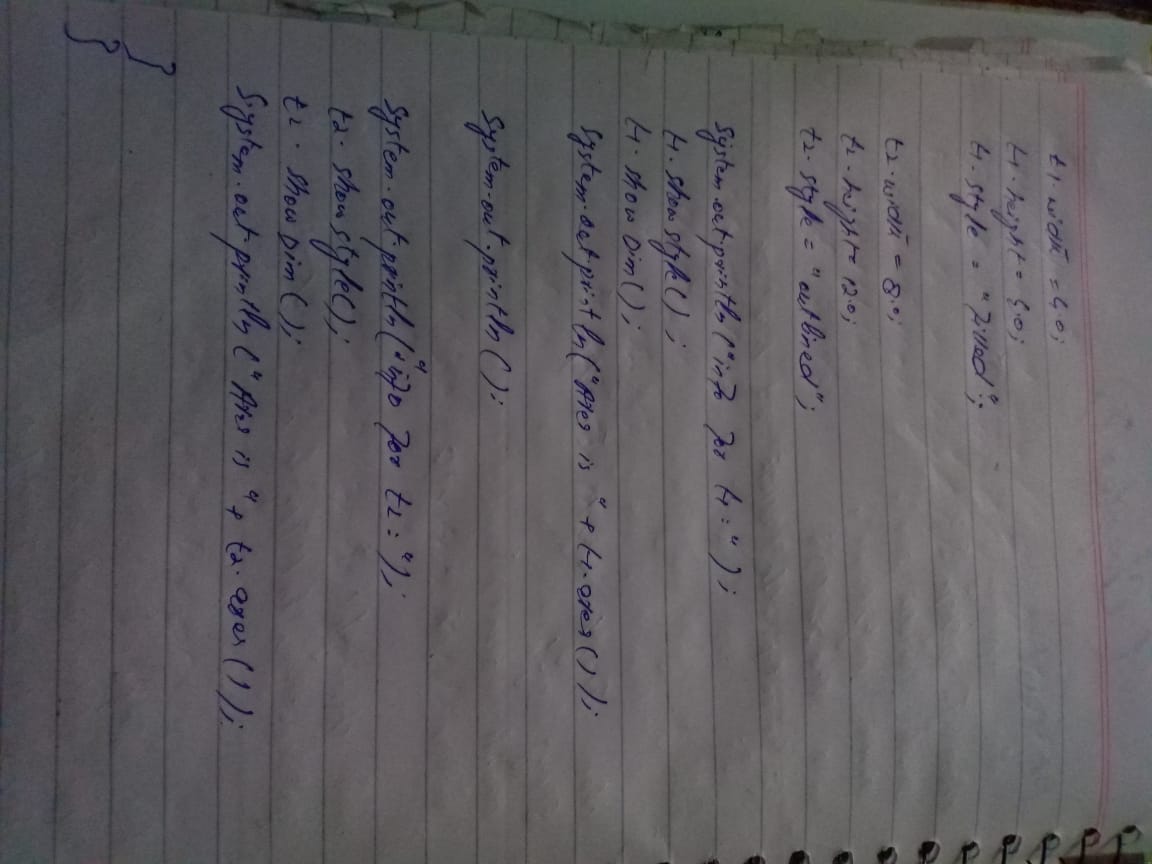 t1.width = 4.0;
t1.height = 4.0;
t1.style = "Filled";
t2.width = 8.0;
t2.height = 12.0;
t2.style = "outlined";
System.out.println("info for t1: ");
t1.show style();
t1.show Dim();
System.out.println("Area is " + t1.area());
System.out.println();
System.out.println("info for t2: ");
t2.show style();
t2.show Dim();
System.out.println("Area is " + t2.area());
}
}